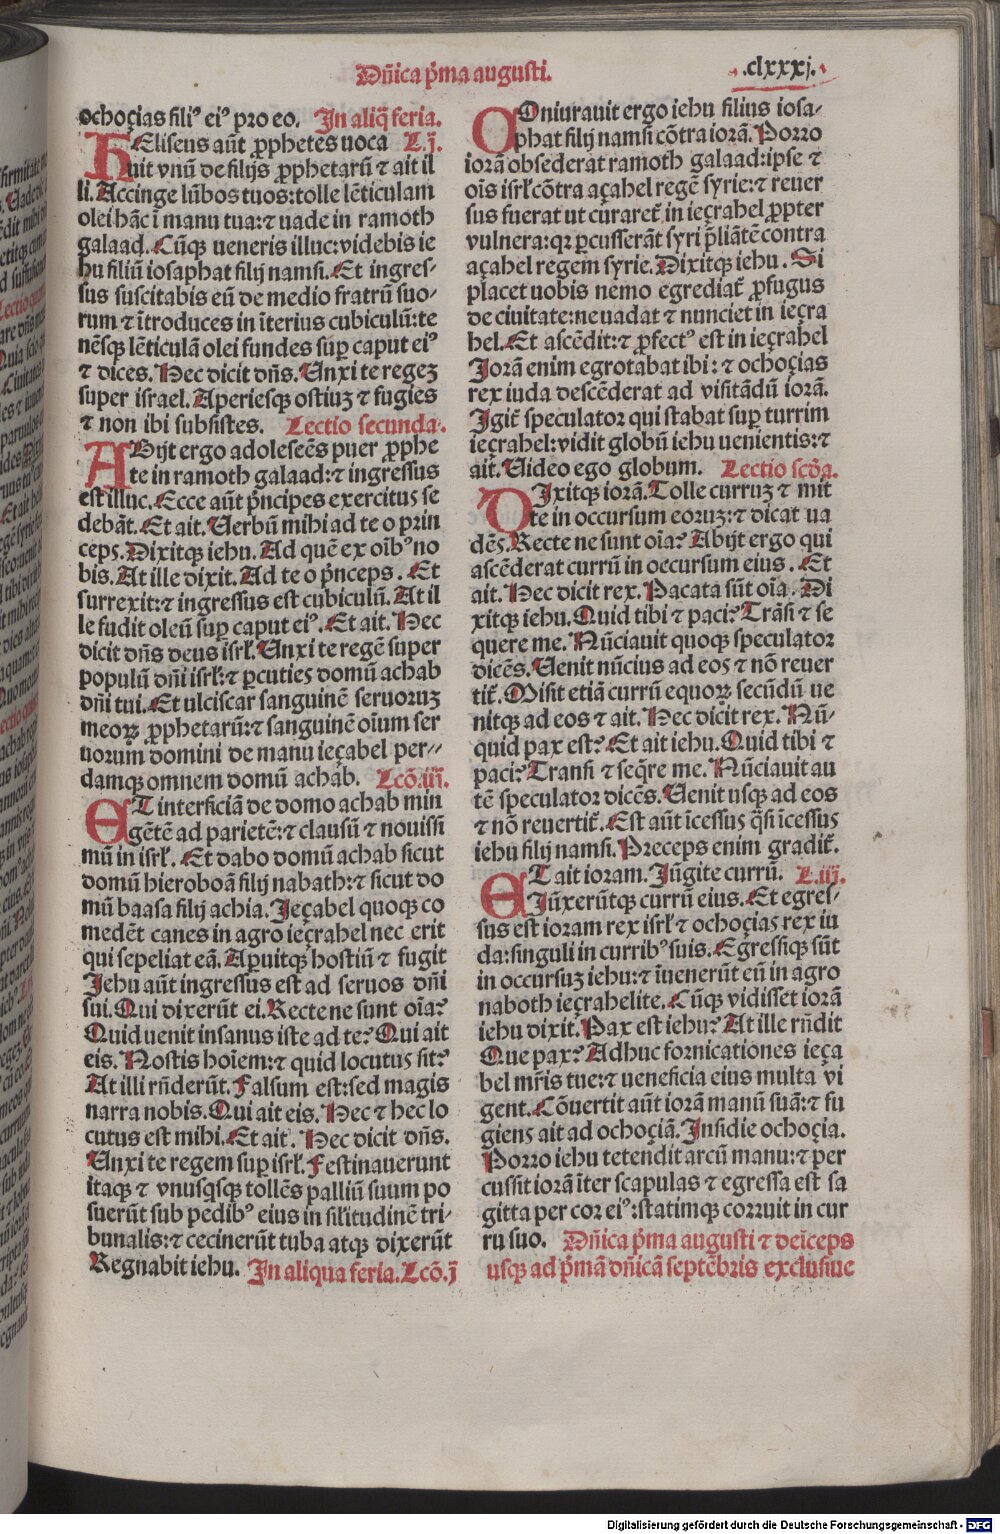 Dñica p̃ma augusti.
.clxxxj.
ochoçias fili⁹ ei⁹ pro eo. In aliq̃ feria.
HEliseus aūt ꝓphetes uoca L.j.
uit vnū de filijs ꝓphetarū ⁊ ait il
li. Accinge lūbos tuos: tolle lēticulam
olei hāc ī manu tua: ⁊ uade in ramoth
galaad. Cūqꝫ ueneris illuc: videbis ie
hu filiū iosaphat filij namsi. Et ingres⸗
sus suscitabis eū de medio fratrū suo⸗
rum ⁊ ītroduces in īterius cubiculū: te
nēsqꝫ lēticulā olei fundes suꝑ caput ei⁹
⁊ dices. Hec dicit dñs. Unxi te regeꝫ
super israel. Aperiesqꝫ ostiuꝫ ⁊ fugies
⁊ non ibi subsistes. Lectio secunda.
ABijt ergo adolescēs puer ꝓphe
te in ramoth galaad: ⁊ ingressus
est illuc. Ecce aūt p̃ncipes exercitus se
debāt. Et ait. Uerbū mihi ad te o prin
ceps. Dixitqꝫ iehu. Ad quē ex oīb⁹ no
bis. At ille dixit. Ad te o p̃nceps. Et
surrexit: ⁊ ingressus est cubiculū. At il
le fudit oleū suꝑ caput ei⁹. Et ait. Hec
dicit dñs deus isrł. Unxi te regē super
populū dñi isrł: ⁊ ꝑcuties domū achab
dñi tui. Et ulciscar sanguinē seruoruꝫ
meoꝝ ꝓphetarū: ⁊ sanguinē oīum ser
uorum domini de manu ieçabel per⸗
damqꝫ omnem domū achab. Lcō.iij.
ET interficiā de domo achab min
gētē ad parietē: ⁊ clausū ⁊ nouissi
mū in isrł. Et dabo domū achab sicut
domū hieroboā filij nabath: ⁊ sicut do
mū baasa filij achia. Ieçabel quoqꝫ co
medēt canes in agro ieçrahel nec erit
qui sepeliat eā. Aꝑuitqꝫ hostiū ⁊ fugit
Iehu aūt ingressus est ad seruos dñi
sui. Qui dixerūt ei. Recte ne sunt oīa?
Quid uenit insanus iste ad te? Qui ait
eis. Nostis hoīem: ⁊ quid locutus sit?
At illi rñderūt. Falsum est: sed magis
narra nobis. Qui ait eis. Hec ⁊ hec lo
cutus est mihi. Et ait. Hec dicit dñs.
Unxi te regem suꝑ isrł. Festinauerunt
itaqꝫ ⁊ vnusq̃sqꝫ tollēs palliū suum po
suerūt sub pedib⁹ eius in siłitudinē tri⸗
bunalis: ⁊ cecinerūt tuba atqꝫ dixerūt
Regnabit iehu. In aliqua feria. Lcō.j
COniurauit ergo iehu filius iosa⸗
phat filij namsi cōtra iorā. Porro
iorā obsederat ramoth galaad: ipse ⁊
oīs isrł cōtra açahel regē syrie: ⁊ reuer
sus fuerat ut curaret᷑ in ieçrahel ꝓpter
vulnera: qꝛ ꝑcusserāt syri p̃liātē contra
açahel regem syrie. Dixitqꝫ iehu. Si
placet uobis nemo egrediat᷑ ꝓfugus
de ciuitate: ne uadat ⁊ nunciet in ieçra
hel. Et ascēdit: ⁊ ꝓfect⁹ est in ieçrahel
Iorā enim egrotabat ibi: ⁊ ochoçias
rex iuda descēderat ad visitādū iorā.
Igit᷑ speculator qui stabat suꝑ turrim
ieçrahel: vidit globū iehu uenientis: ⁊
ait. Uideo ego globum. Lectio scd̃a.
DIxitqꝫ iorā. Tolle curruꝫ ⁊ mit
te in occursum eoruꝫ: ⁊ dicat ua
dēs. Recte ne sunt oīa? Abijt ergo qui
ascēderat currū in occursum eius. Et
ait. Hec dicit rex. Pacata sūt oīa. Di
xitqꝫ iehu. Quid tibi ⁊ paci? Trāsi ⁊ se
quere me. Nūciauit quoqꝫ speculator
dicēs. Uenit nūcius ad eos ⁊ nō reuer
tit᷑. Misit etiā currū equoꝝ secūdū ue
nitqꝫ ad eos ⁊ ait. Hec dicit rex. Nū⸗
quid pax est? Et ait iehu. Quid tibi ⁊
paci? Transi ⁊ seq̃re me. Nūciauit au
tē speculator dicēs. Uenit usqꝫ ad eos
⁊ nō reuertit᷑. Est aūt īcessus q̃si īcessus
iehu filij namsi. Preceps enim gradit᷑.
ET ait ioram. Iūgite currū. L.iij.
Iūxerūtqꝫ currū eius. Et egres⸗
sus est ioram rex isrł ⁊ ochoçias rex iu
da: singuli in currib⁹ suis. Egressiqꝫ sūt
in occursuꝫ iehu: ⁊ īuenerūt eū in agro
naboth ieçrahelite. Cūqꝫ vidisset iorā
iehu dixit. Pax est iehu? At ille rñdit
Que pax? Adhuc fornicationes ieça
bel mr̃is tue: ⁊ ueneficia eius multa vi
gent. Cōuertit aūt iorā manū suā: ⁊ fu
giens ait ad ochoçiā. Insidie ochoçia.
Porro iehu tetendit arcū manu: ⁊ per
cussit iorā īter scapulas ⁊ egressa est sa
gitta per cor ei⁹: statimqꝫ corruit in cur
ru suo. Dñica p̃ma augusti ⁊ deīceps
usqꝫ ad p̃mā dñicā septēbris exclusiue
Digitalisierung gefördert durch die Deutsche Forschungsgemeinschaft - DFG